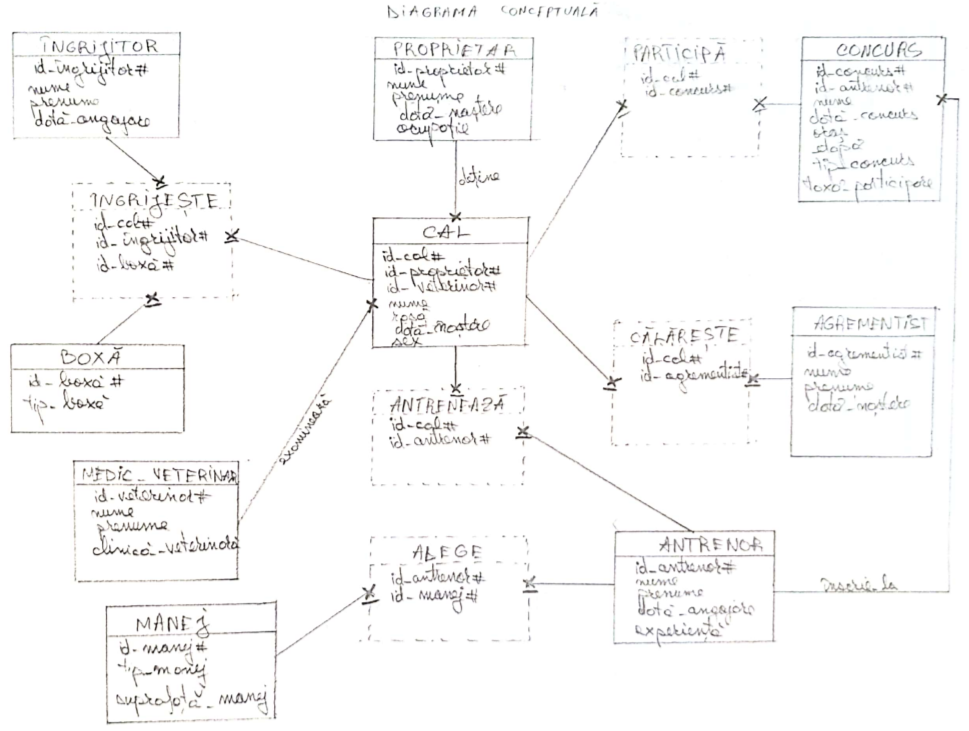 DIAGRAMA CONCEPTUALĂ
ÎNGRIJITOR
id_îngrijitor#
nume
prenume
dată_angajare
PROPRIETAR
id_proprietar#
nume
prenume
dată_naștere
ocupație
PARTICIPĂ
id_cal#
id_concurs#
CONCURS
id_concurs#
id_antrenor#
nume
dată_concurs
oraș
etapă
tip_concurs
taxă_participare
deține
ÎNGRIJEȘTE
id_cal#
id_îngrijitor#
id_boxă#
CAL
id_cal#
id_proprietar#
id_veterinar#
nume
rasă
dată_naștere
sex
BOXĂ
id_boxă#
tip_boxă
examinează
CĂLĂREȘTE
id_cal#
id_agrementist#
AGREMENTIST
id_agrementist#
nume
prenume
dată_naștere
ANTRENEAZĂ
id_cal#
id_antrenor#
MEDIC_VETERINAR
id_veterinar#
nume
prenume
clinică_veterinară
ALEGE
id_antrenor#
id_manej#
ANTRENOR
id_antrenor#
nume
prenume
dată_angajare
experiență
înscrie_la
MANEJ
id_manej#
tip_manej
suprafață_manej